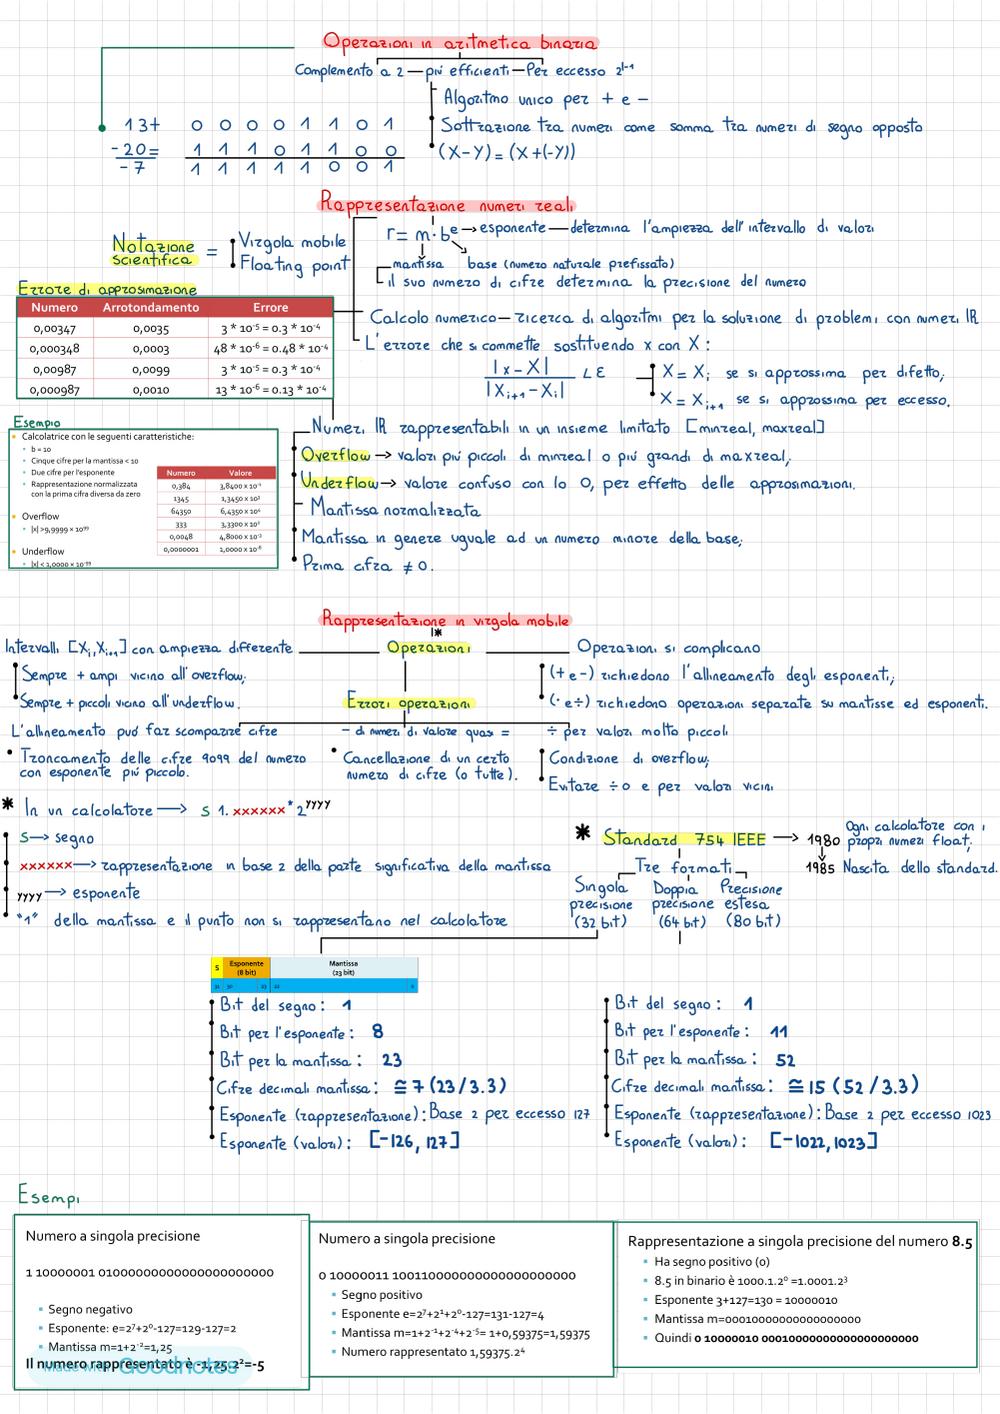 Operazioni in aritmetica binaria
Complemento a 2 — più efficienti — Per eccesso 2ᵗ⁻¹
Algoritmo unico per + e -
13+ 0 0 0 0 1 1 0 1
Sottrazione tra numeri come somma tra numeri di segno opposto
-20= 1 1 1 0 1 1 0 0
(X-Y)=(X+(-Y))
-7 1 1 1 1 1 0 0 1
Rappresentazione numeri reali
r = m · bᵉ → esponente — determina l'ampiezza dell'intervallo di valori
Notazione scientifica = Virgola mobile
Floating point
mantissa base (numero naturale prefissato)
il suo numero di cifre determina la precisione del numero
Errore di approssimazione
Numero Arrotondamento Errore
0,00347 0,0035 3 * 10⁻⁵ = 0.3 * 10⁻⁴
0,000348 0,0003 48 * 10⁻⁶ = 0.48 * 10⁻⁴
0,00987 0,0099 3 * 10⁻⁵ = 0.3 * 10⁻⁴
0,000987 0,0010 13 * 10⁻⁶ = 0.13 * 10⁻⁴
Calcolo numerico — ricerca di algoritmi per la soluzione di problemi con numeri IR
L'errore che si commette sostituendo x con X :
|x-X|
|Xᵢ₊₁-Xᵢ| < ε
X = Xᵢ se si approssima per difetto;
X = Xᵢ₊₁ se si approssima per eccesso.
Esempio
Calcolatrice con le seguenti caratteristiche:
b = 10
Cinque cifre per la mantissa < 10
Due cifre per l'esponente
Rappresentazione normalizzata
con la prima cifra diversa da zero
Overflow
|x| >9,9999 × 10⁹⁹
Underflow
|x| < 1,0000 × 10⁻⁹⁹
Numero Valore
0,384 3,8400 x 10⁻¹
1345 1,3450 x 10³
64350 6,4350 x 10⁴
333 3,3300 x 10²
0,0048 4,8000 x 10⁻³
0,0000001 1,0000 x 10⁻⁸
Numeri IR rappresentabili in un insieme limitato [minreal, maxreal]
Overflow → valori più piccoli di minreal o più grandi di maxreal;
Underflow → valore confuso con lo 0, per effetto delle approssimazioni.
Mantissa normalizzata
Mantissa in genere uguale ad un numero minore della base;
Prima cifra ≠ 0.
Rappresentazione in virgola mobile
*
Intervalli [Xᵢ,Xᵢ₊₁] con ampiezza differente
Operazioni
Operazioni si complicano
Sempre + ampi vicino all'overflow;
(+ e -) richiedono l'allineamento degli esponenti;
Sempre + piccoli vicino all'underflow.
Errori operazioni
(· e ÷) richiedono operazioni separate su mantisse ed esponenti.
L'allineamento può far scomparire cifre
- di numeri di valore quasi =
÷ per valori molto piccoli
Troncamento delle cifre 9099 del numero
con esponente più piccolo.
Cancellazione di un certo
numero di cifre (o tutte).
Condizione di overflow;
Evitare ÷0 e per valori vicini
* In un calcolatore → S 1. xxxxxx * 2ʸʸʸʸ
S → segno
xxxxxx → rappresentazione in base 2 della parte significativa della mantissa
yyyy → esponente
"1" della mantissa e il punto non si rappresentano nel calcolatore
* Standard 754 IEEE → 1980 Ogni calcolatore con i
propri numeri float;
1985 Nascita dello standard.
Tre formati
Singola precisione (32 bit)
Doppia precisione (64 bit)
Precisione estesa (80 bit)
S Esponente (8 bit) Mantissa (23 bit)
31 30 23 22 0
Bit del segno: 1
Bit per l'esponente: 8
Bit per la mantissa: 23
Cifre decimali mantissa: ≅ 7 (23/3.3)
Esponente (rappresentazione): Base 2 per eccesso 127
Esponente (valori): [-126, 127]
Bit del segno: 1
Bit per l'esponente: 11
Bit per la mantissa: 52
Cifre decimali mantissa: ≅ 15 (52/3.3)
Esponente (rappresentazione): Base 2 per eccesso 1023
Esponente (valori): [-1022, 1023]
Esempi
Numero a singola precisione
1 10000001 01000000000000000000000
Segno negativo
Esponente: e=2⁷+2⁰-127=129-127=2
Mantissa m=1+2⁻²=1,25
Il numero rappresentato è -1,25.2²=-5
Made with Goodnotes
Numero a singola precisione
0 10000011 10011000000000000000000
Segno positivo
Esponente e=2⁷+2¹+2⁰-127=131-127=4
Mantissa m=1+2⁻¹+2⁻⁴+2⁻⁵= 1+0,59375=1,59375
Numero rappresentato 1,59375.2⁴
Rappresentazione a singola precisione del numero 8.5
Ha segno positivo (0)
8.5 in binario è 1000.1.2⁰ =1.0001.2³
Esponente 3+127=130 = 10000010
Mantissa m=00010000000000000000000
Quindi 0 10000010 00010000000000000000000